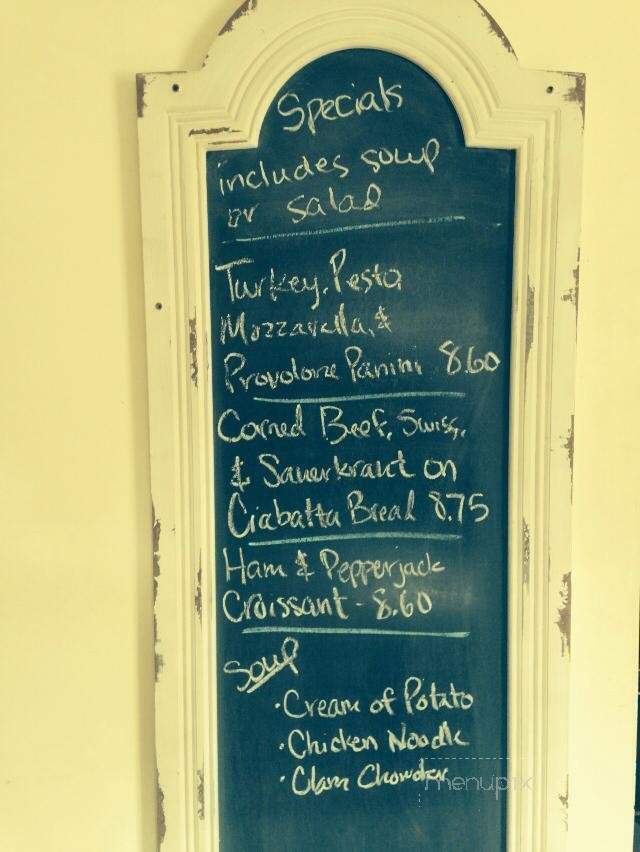 Specials
includes soup
or salad
Turkey, Pesto
Mozzarella, &
Provolone Panini 8.60
Corned Beef, Swiss,
& Sauerkraut on
Ciabatta Bread 8.75
Ham & Pepperjack
Croissant - 8.60
Soup
· Cream of Potato
· Chicken Noodle
· Clam Chowder
menupix